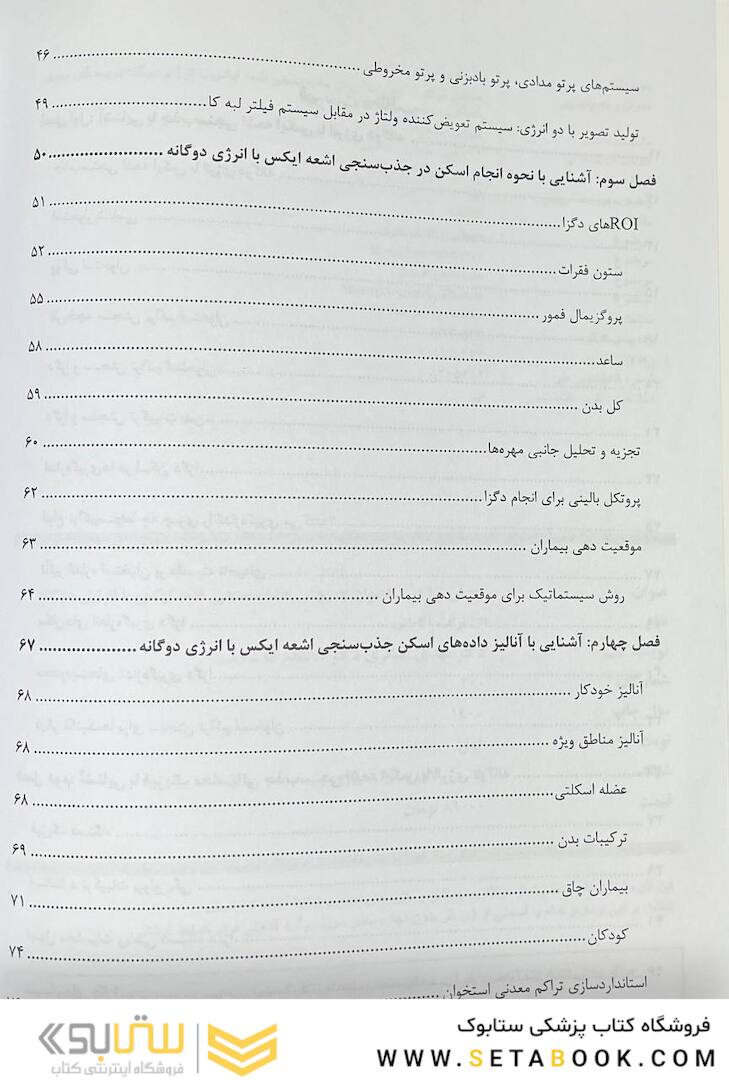 سیستم‌های پرتو مدادی، پرتو بادبزنی و پرتو مخروطی ........ ۴۶
تولید تصویر با دو انرژی: سیستم تعویض‌کننده ولتاژ در مقابل سیستم فیلتر لبه کا ........ ۴۹
فصل سوم: آشنایی با نحوه انجام اسکن در جذب‌سنجی اشعه ایکس با انرژی دوگانه ........ ۵۰
ROIهای دگزا ........ ۵۱
ستون فقرات ........ ۵۲
پروگزیمال فمور ........ ۵۵
ساعد ........ ۵۸
کل بدن ........ ۵۹
تجزیه و تحلیل جانبی مهره‌ها ........ ۶۰
پروتکل بالینی برای انجام دگزا ........ ۶۲
موقعیت دهی بیماران ........ ۶۳
روش سیستماتیک برای موقعیت دهی بیماران ........ ۶۴
فصل چهارم: آشنایی با آنالیز داده‌های اسکن جذب‌سنجی اشعه ایکس با انرژی دوگانه ........ ۶۷
آنالیز خودکار ........ ۶۸
آنالیز مناطق ویژه ........ ۶۸
عضله اسکلتی ........ ۶۸
ترکیبات بدن ........ ۶۹
بیماران چاق ........ ۷۱
کودکان ........ ۷۴
استانداردسازی تراکم معدنی استخوان ........
فروشگاه کتاب پزشکی ستابوک
WWW.SETABOOK.COM
ستابوک
فروشگاه اینترنتی کتاب